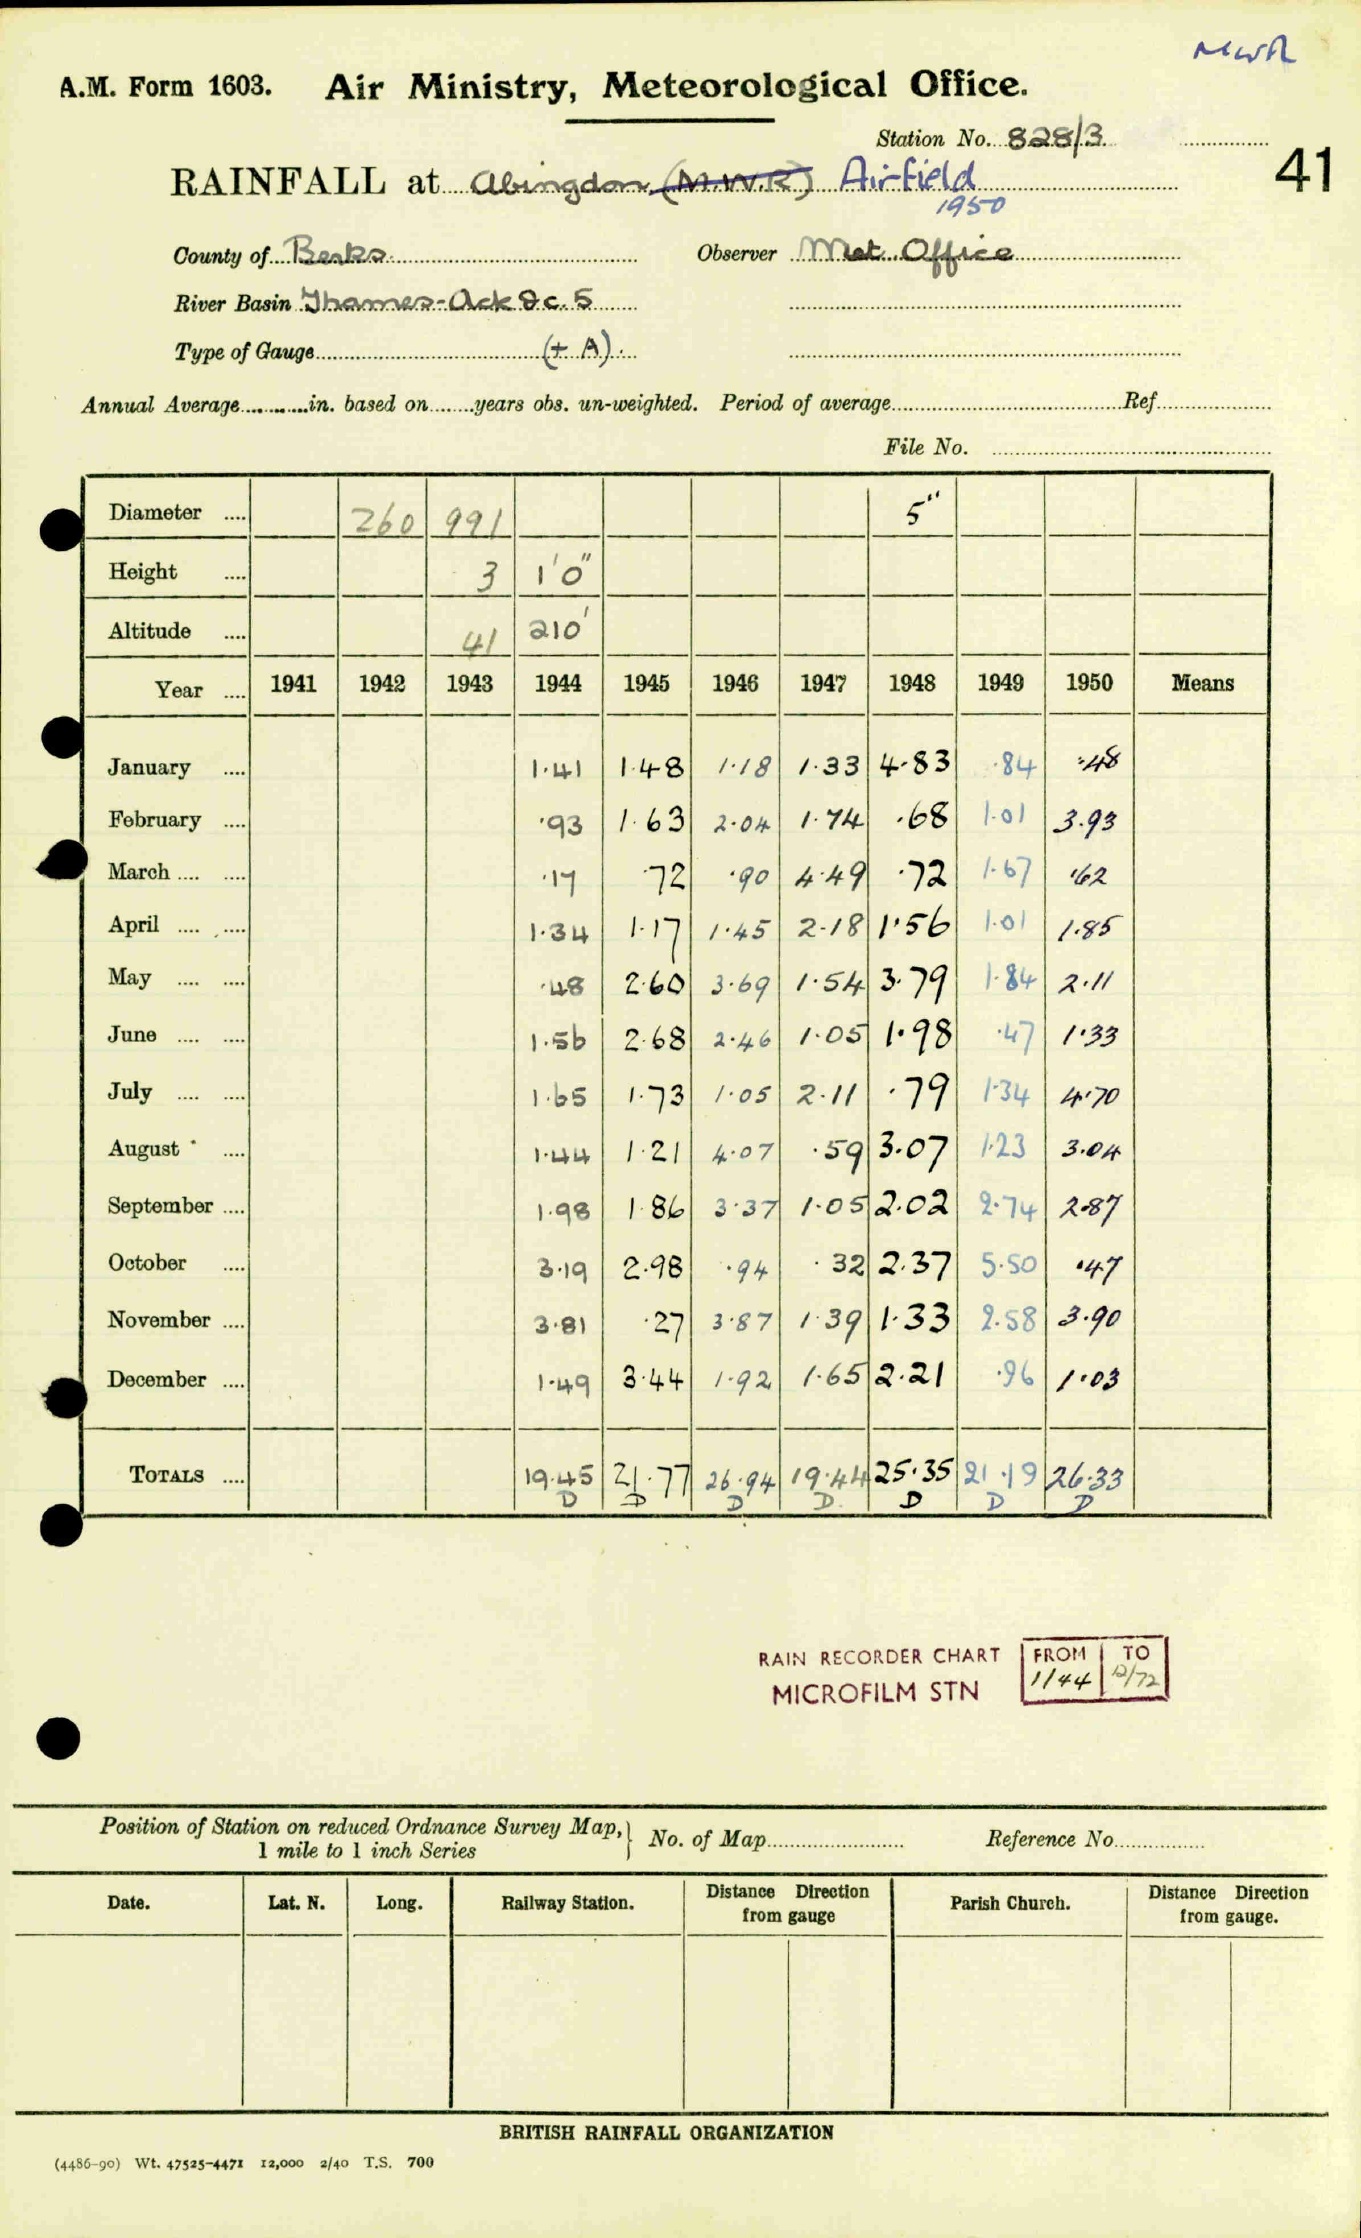 MWR
A.M. Form 1603. Air Ministry, Meteorological Office.
Station No. 828/3
RAINFALL at Abingdon (M.W.R) Airfield 41
1950
County of Berks. Observer Met. Office
River Basin Thames-Ock &c. 5
Type of Gauge (+ A).
Annual Average............in. based on........years obs. un-weighted. Period of average........Ref........
File No.
Diameter .... 260 991 5"
Height .... 3 1'0"
Altitude .... 41 210'
Year .... 1941 1942 1943 1944 1945 1946 1947 1948 1949 1950 Means
January .... 1.41 1.48 1.18 1.33 4.83 .84 .48
February .... .93 1.63 2.04 1.74 .68 1.01 3.93
March .... .... .17 .72 .90 4.49 .72 1.67 .62
April .... .... 1.34 1.17 1.45 2.18 1.56 1.01 1.85
May .... .... .48 2.60 3.69 1.54 3.79 1.84 2.11
June .... .... 1.56 2.68 2.46 1.05 1.98 .47 1.33
July .... .... 1.65 1.73 1.05 2.11 .79 1.34 4.70
August .... 1.44 1.21 4.07 .59 3.07 1.23 3.04
September .... 1.98 1.86 3.37 1.05 2.02 2.74 2.87
October .... 3.19 2.98 .94 .32 2.37 5.50 .47
November .... 3.81 .27 3.87 1.39 1.33 2.58 3.90
December .... 1.49 3.44 1.92 1.65 2.21 .96 1.03
TOTALS .... 19.45 21.77 26.94 19.44 25.35 21.19 26.33
D D D D. D D D
RAIN RECORDER CHART FROM TO
MICROFILM STN 1/44 12/72
Position of Station on reduced Ordnance Survey Map,} No. of Map........ Reference No........
1 mile to 1 inch Series
Date. Lat. N. Long. Railway Station. Distance Direction Parish Church. Distance Direction
from gauge from gauge.
BRITISH RAINFALL ORGANIZATION
(4486-90) Wt. 47525-4471 12,000 2/40 T.S. 700